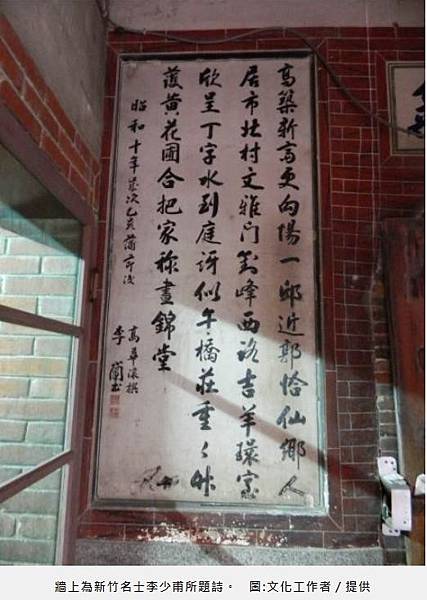 高築新高更向陽一邨近郭恰仙鄉人
居市北村文雅門對峰西路吉羊環家
欣呈丁字水到庭訝似午橋莊重々竹
護黃花圃合把家稱晝錦堂
昭和十年歲次乙亥蒲節後
高華滾撰
李書
牆上為新竹名士李少甫所題詩。 圖:文化工作者/提供